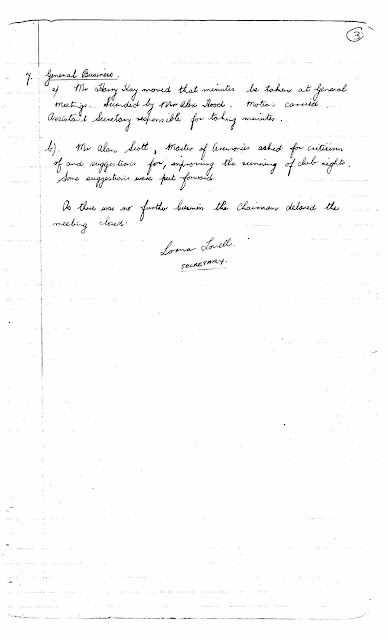 3
7. General Business.
a) Mr Harry Kay moved that minutes be taken at General
Meetings. Seconded by Mrs Alex Hood. Motion carried.
Assistant Secretary responsible for taking minutes.
b). Mr Alan Scott, Master of Ceremonies asked for criticism
of and suggestions for, improving the running of club nights.
Some suggestions were put forward.
As there was no further business the Chairman declared the
meeting closed.
Lorna Lovell.
SECRETARY.